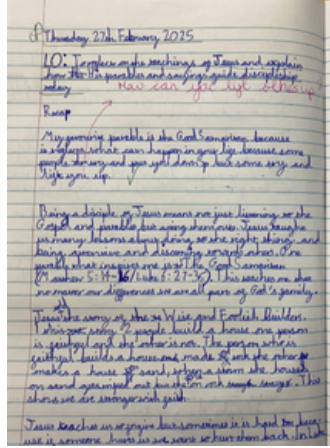 Thursday 27th February 2025
LO: To explore the teachings of Jesus and explain
how His parables and sayings guide discipleship
today How can you lift others up?
Recap
My parable is the Good Samaritan because
is what can happen in your life because some
people and put you down but some try and
lift you up.
Being a disciple of Jesus means not just listening to the
Gospel and parables but them out. Jesus taught
us many lessons about doing the right thing, and
being and others. One
parable what me is the Good Samaritan
(Matthew 5:14- Luke 6:27-36). This teaches me that
no matter our differences we are all part of God's family.
Jesus the story of the Wise and Foolish Builders.
This story 2 people build a house one person
is faithful and the other is not. The person who is
faithful builds a house made rock the other
makes a house sand, when a storm the house
on sand but the on rock stays. This
shows we are stronger with faith
Jesus teaches us to forgive but sometimes it is hard
use is someone hurts us we want to hurt them back.